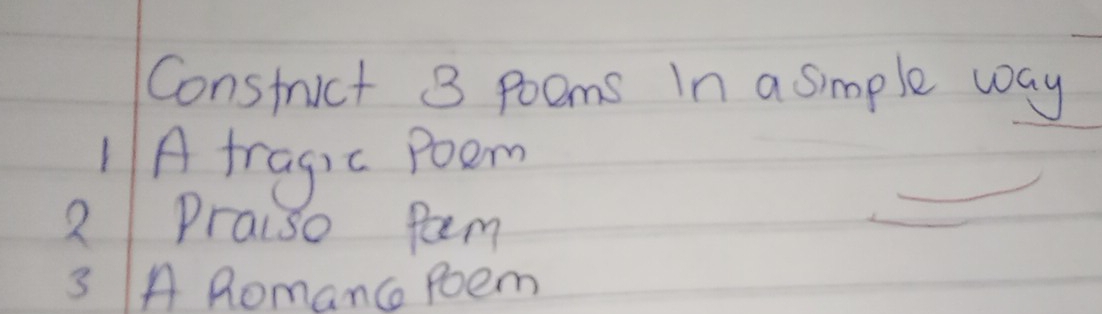 Construct 3 Poems In a simple way
1 A tragic Poem
2 Praise Poem
3 A Romance Poem